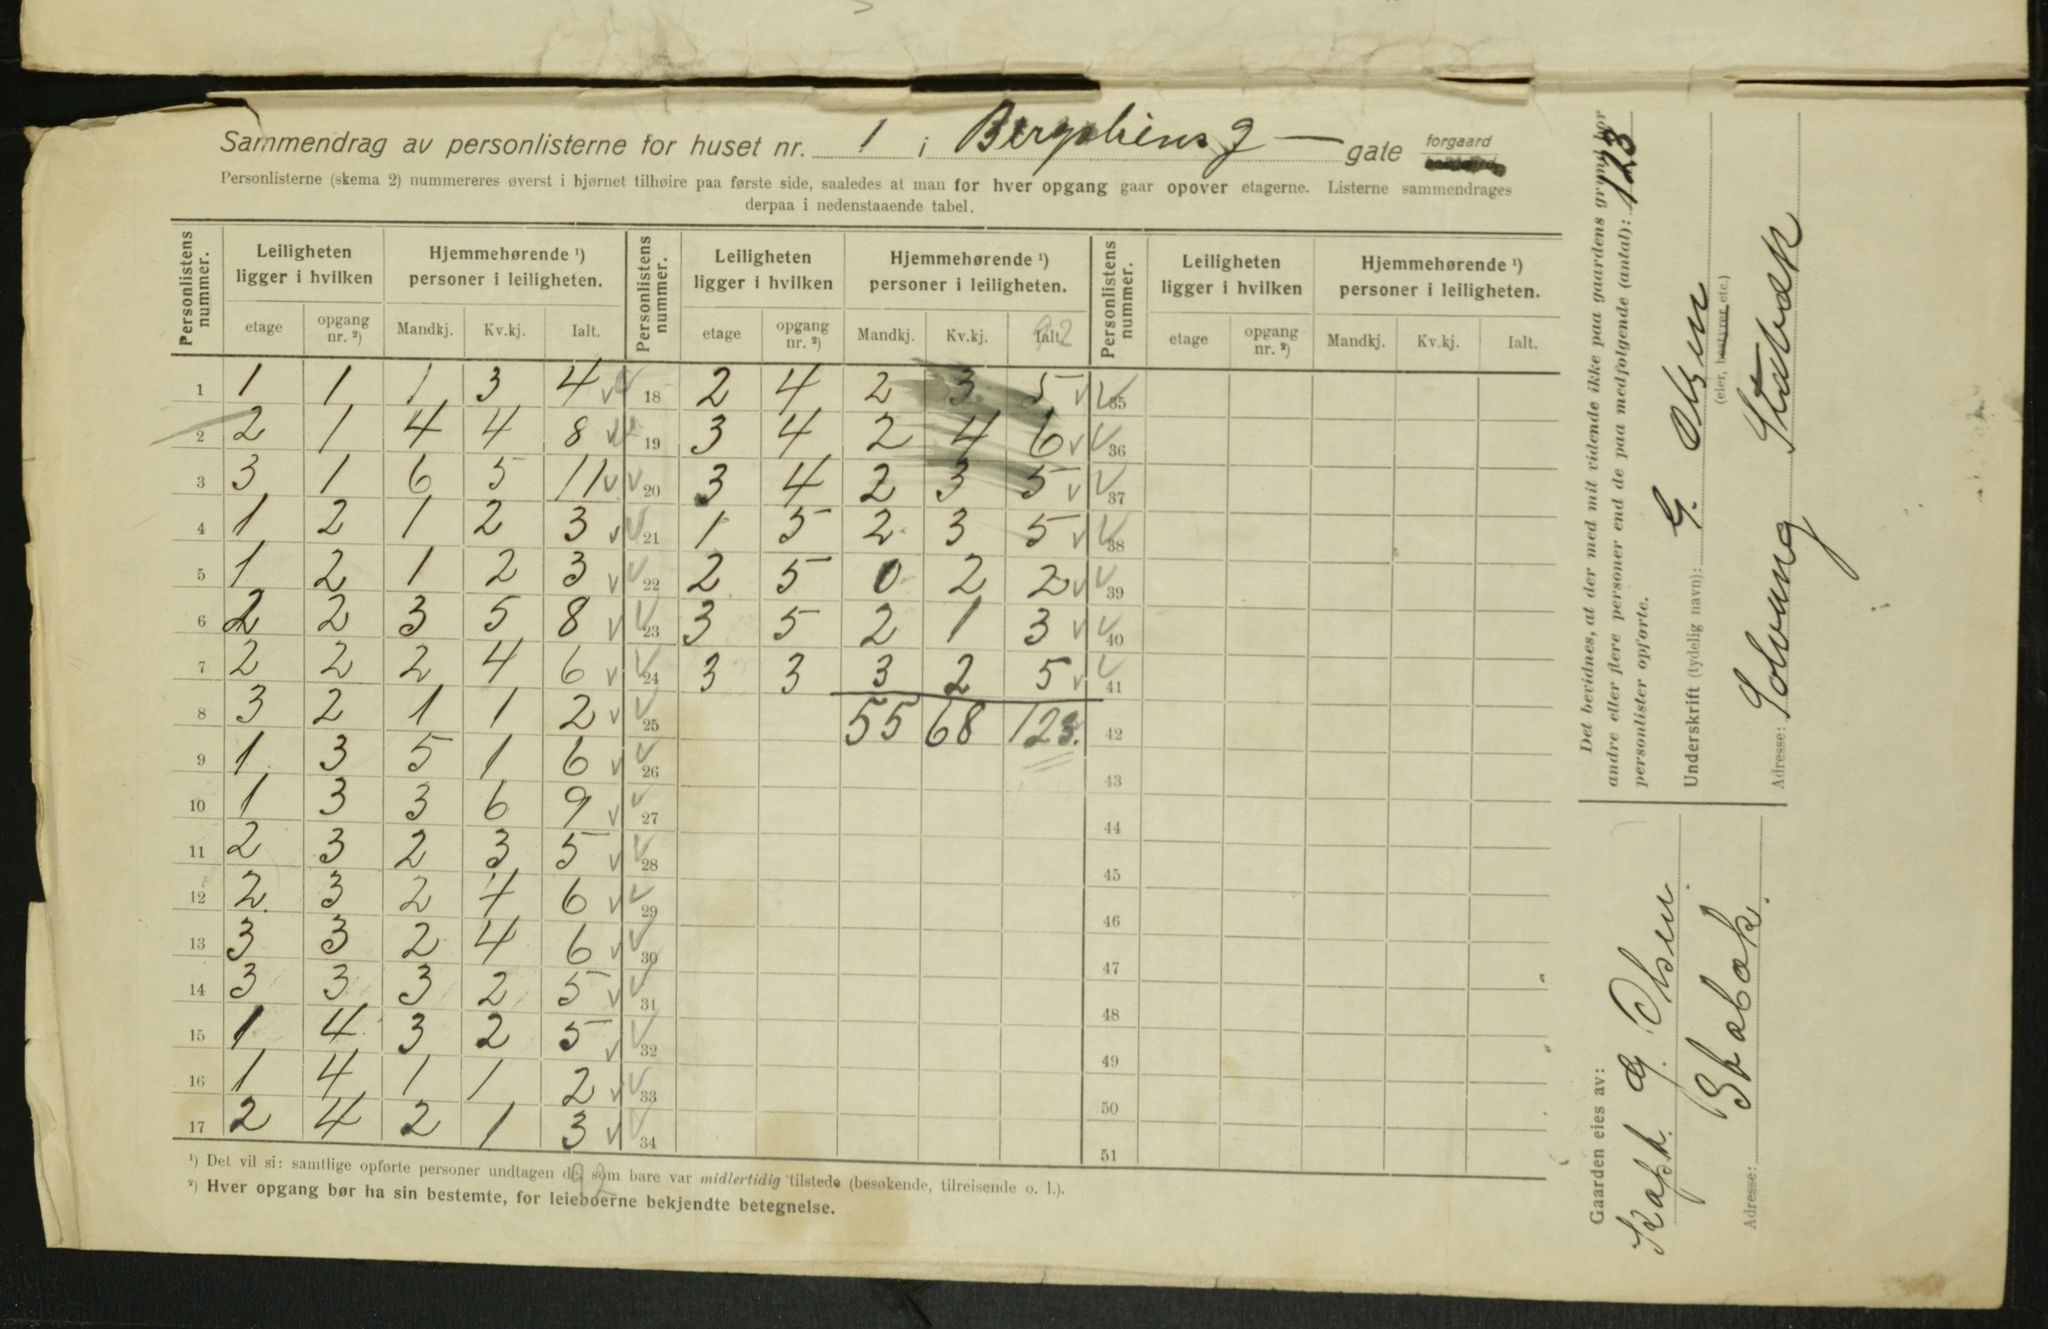 Sammendrag av personlisterne for huset nr. 1 i Bergsliens g — gate forgaard
Personlisterne (skema 2) nummereres øverst i hjørnet tilhøire paa første side, saaledes at man for hver opgang gaar opover etagerne. Listerne sammendrages
derpaa i nedenstaaende tabel.
Personlistens nummer. Leiligheten ligger i hvilken Hjemmehørende ¹) personer i leiligheten. Personlistens nummer. Leiligheten ligger i hvilken Hjemmehørende ¹) personer i leiligheten. Personlistens nummer. Leiligheten ligger i hvilken Hjemmehørende ¹) personer i leiligheten.
etage opgang nr. ²) Mandkj. Kv.kj. Ialt. etage opgang nr. ²) Mandkj. Kv.kj. Ialt. 92 etage opgang nr. ²) Mandkj. Kv.kj. Ialt.
1 1 1 1 3 4 √ √ 18 2 4 2 3 5 √ √ 35
2 2 1 4 4 8 √ √ 19 3 4 2 4 6 √ √ 36
3 3 1 6 5 11 √ √ 20 3 4 2 3 5 √ √ 37
4 1 2 1 2 3 √ √ 21 1 5 2 3 5 √ √ 38
5 1 2 1 2 3 √ √ 22 2 5 0 2 2 √ √ 39
6 2 2 3 5 8 √ √ 23 3 5 2 1 3 √ √ 40
7 2 2 2 4 6 √ √ 24 3 3 3 2 5 √ √ 41
8 3 2 1 1 2 √ √ 25 55 68 123. 42
9 1 3 5 1 6 √ √ 26 43
10 1 3 3 6 9 √ √ 27 44
11 2 3 2 3 5 √ √ 28 45
12 2 3 2 4 6 √ √ 29 46
13 3 3 2 4 6 √ √ 30 47
14 3 3 3 2 5 √ √ 31 48
15 1 4 3 2 5 √ √ 32 49
16 1 4 1 1 2 √ √ 33 50
17 2 4 2 1 3 √ √ 34 51
92
¹) Det vil si: samtlige opførte personer undtagen de, som bare var midlertidig tilstede (besøkende, tilreisende o. l.).
²) Hver opgang bør ha sin bestemte, for leieboerne bekjendte betegnelse.
Gaarden eies av:
Kapt. G. Olsen
Stabæk.
Adresse:
Det bevidnes, at der med mit vidende ikke paa gaardens grund bor
andre eller flere personer end de paa medfølgende (antal): 123
personlister opførte.
Underskrift (tydelig navn): G. Olsen
(eier, bestyrer etc.)
Adresse: Solvung Stabæk